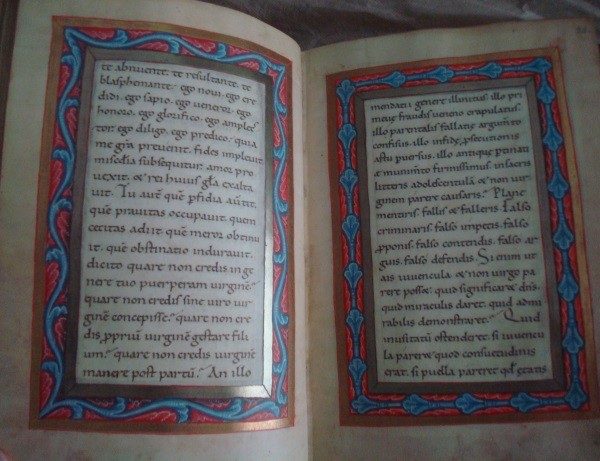 te abnuente. te resultante. te
blasphemante. ego noui. ego cre
didi. ego sapio. ego ueneror. ego
honoro. ego glorifico. ego amplec
tor. ego diligo. ego predico. quia
me gra prevenit. fides impleuit
misedia subsequitur. amor pro
uexit. & rei huius gla exalta
uit. Tu aute que pfidia adtit.
que prauitas occupauit. quem
cecitas adiit que meror obtinu
it. que obstinatio indurauit.
dicito quare non credis in ge
nere tuo puerperam uirgine?
quare non credis sine uiro uir
gine concepisse? quare non cre
dis ppriu uirgine gestare fili
um? quare non credis uirgine
manere post partu? An illo
mendatii genere illuntus illo pri
meuae fraudis ueneno crapulatus
illo parentalis fallatiae argumto
confisus. illo infidae psecutionis
astu puersus. illo antique
munimto firmissimus. in sacris
litteris adolescentula & non uir
ginem parere causaris? Plane
mentiris. fallis & falleris. Falso
criminaris. falso impetis. falso
pponis. falso contendis. falso ar
guis. falso defendis. Si enim ut
ais iuuencula & non uirgo pa
rere posse. quid significar& dns.
quid miraculi dar&. quid admi
rabilis demonstrar&. Quid
inusitatu ostender&. si iuuencu
la parer& quod consuetudinis
erat. si puella parer& qd &atis